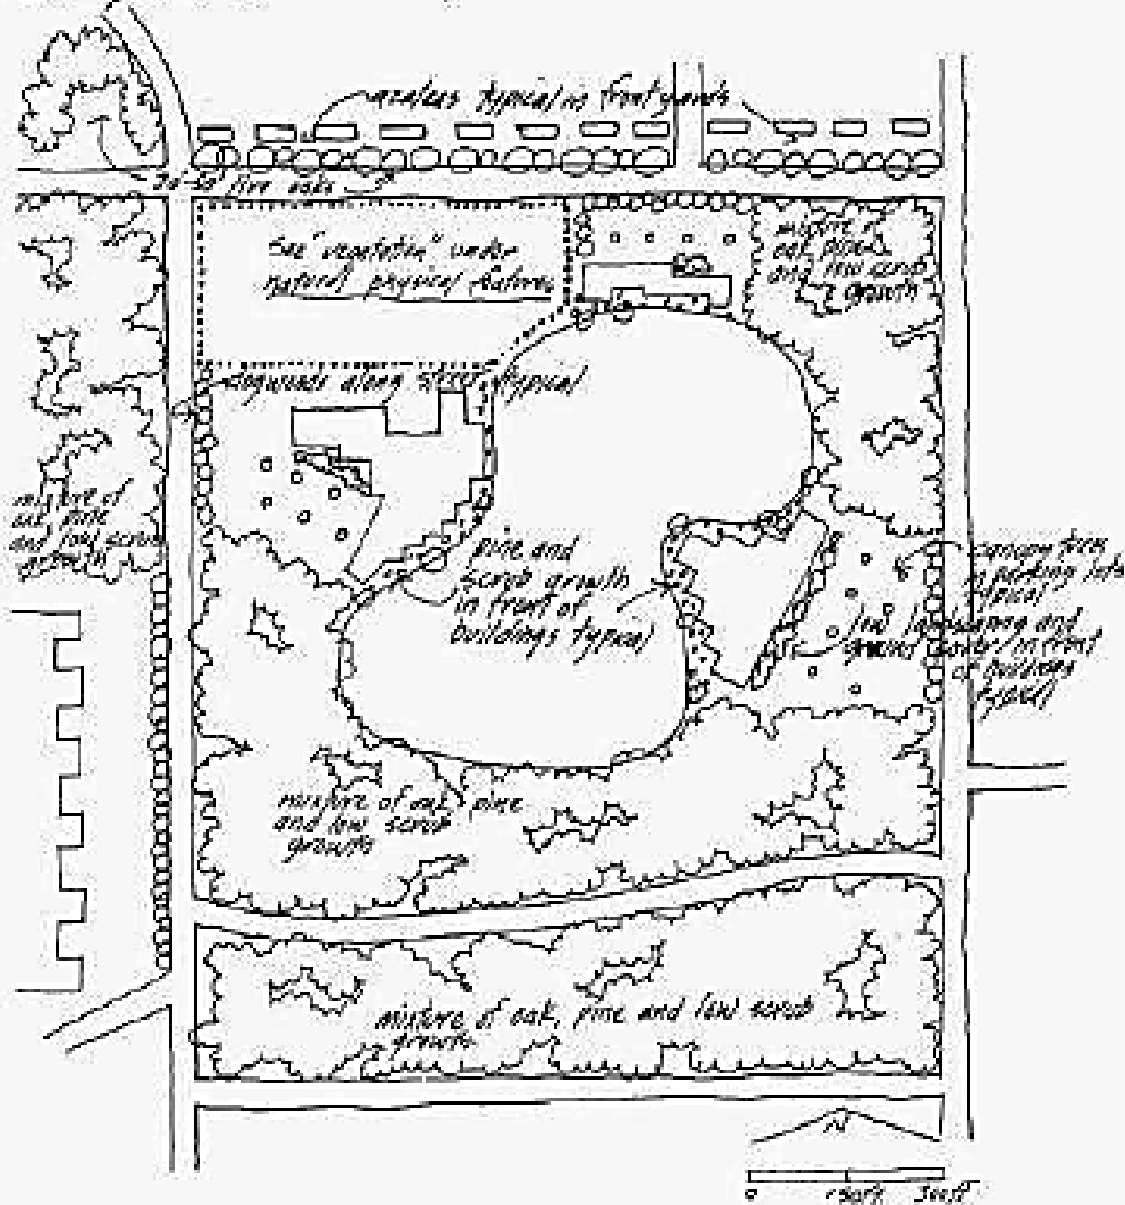 azaleas typical in front yards
live oaks
See "vegetation" under
natural physical features
mixture of
oak, pine
and low scrub
growth
dogwoods along street typical
mixture of
oak, pine
and low scrub
growth
pine and
scrub growth
in front of
buildings typical
canopy trees
in parking lots
typical
low landscaping and
ground cover in front
of buildings
typical
mixture of oak, pine
and low scrub
growth
mixture of oak, pine and low scrub
growth
N
0 150ft 300ft